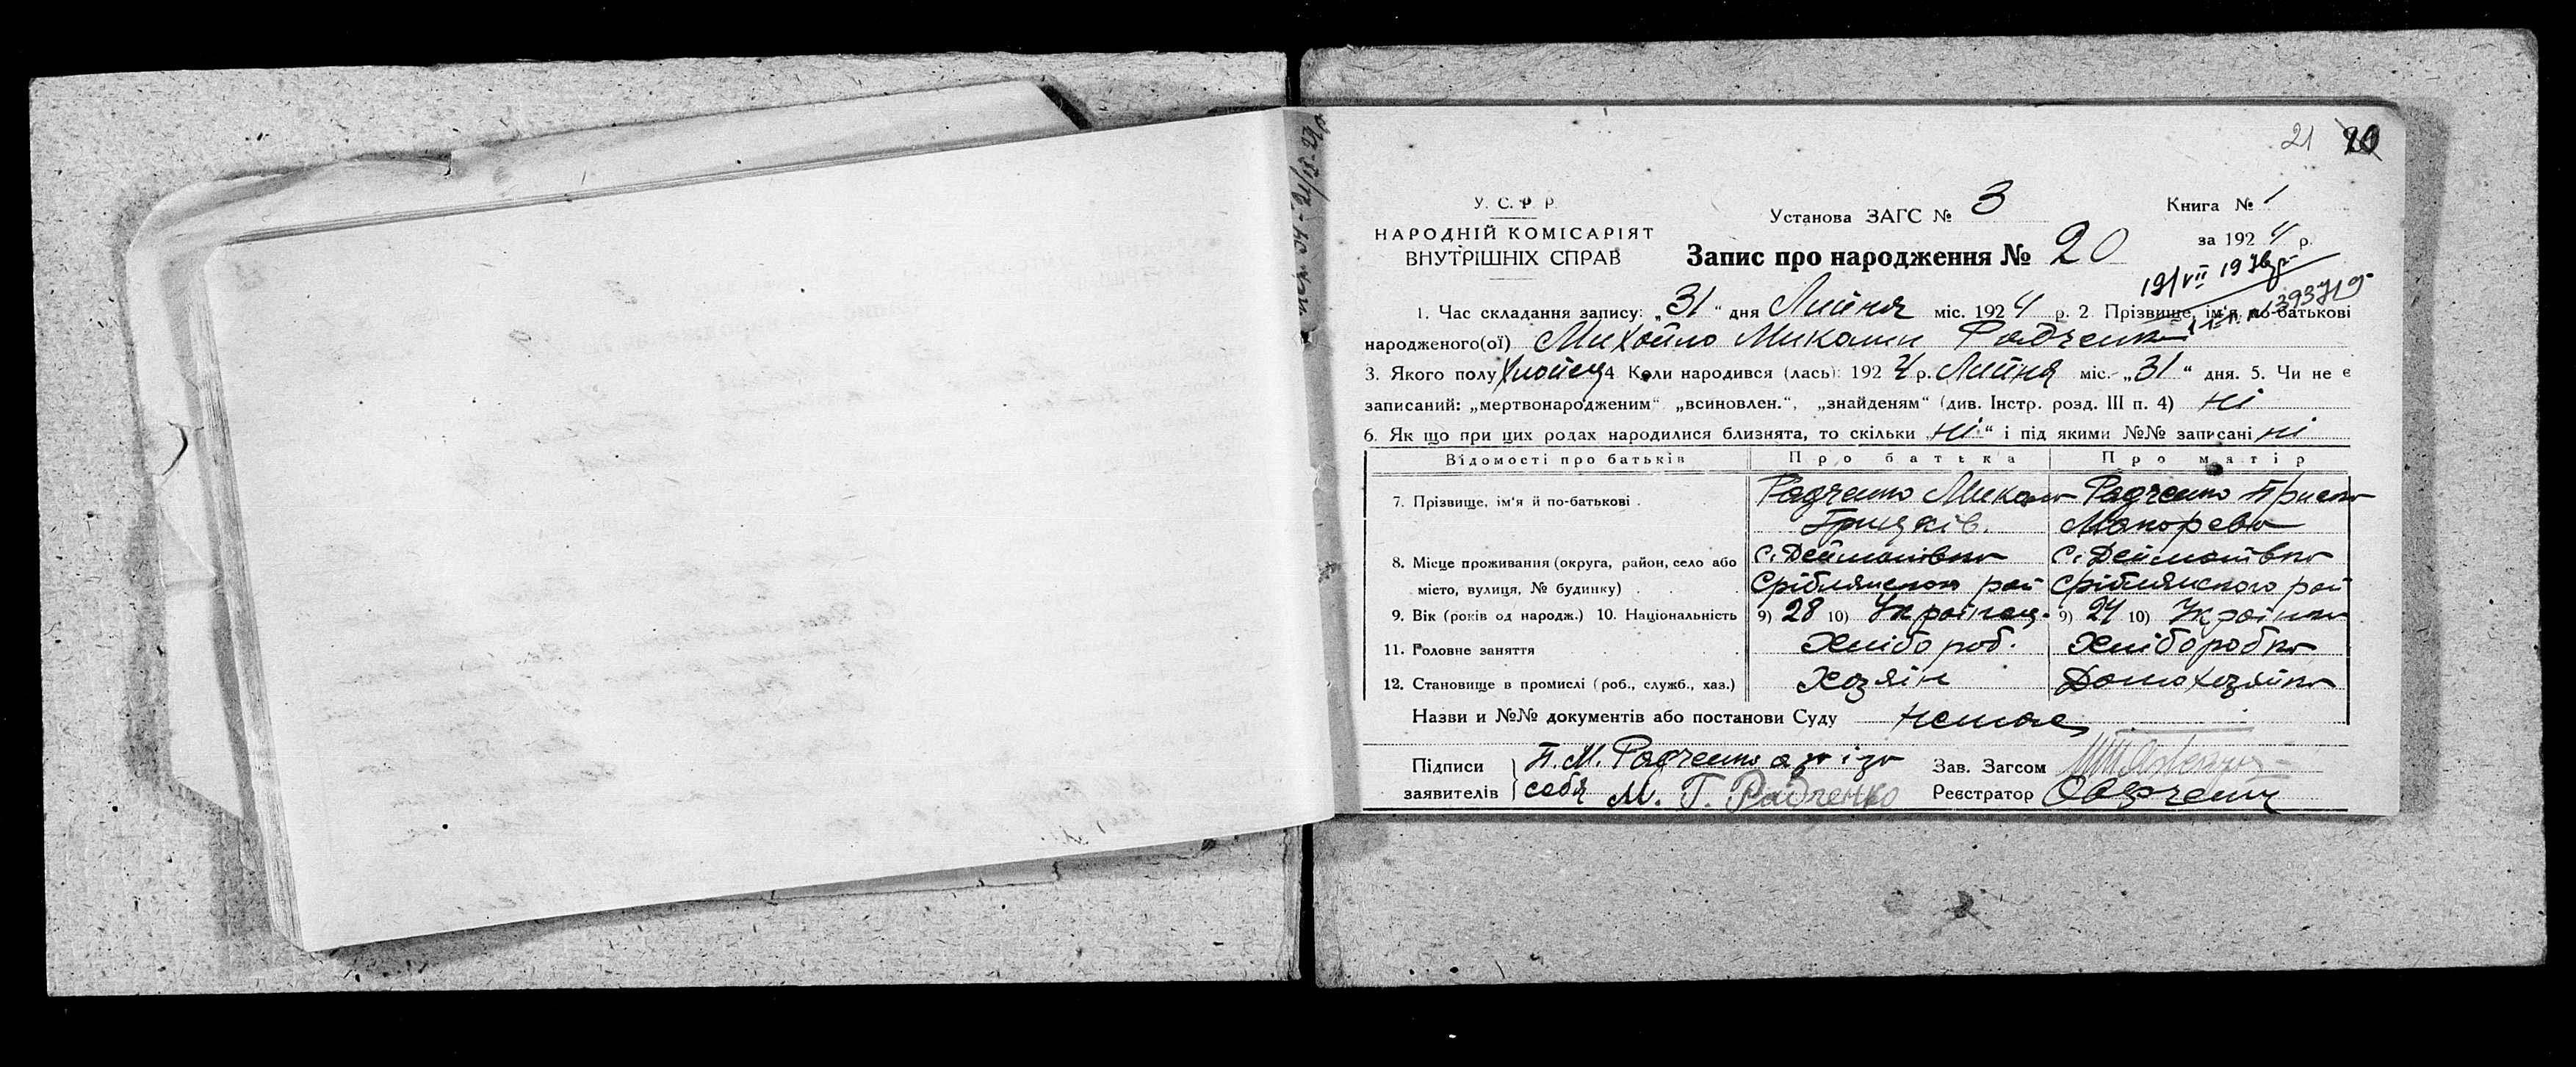 21 20
У. С. Р. Р.
НАРОДНІЙ КОМІСАРІЯТ
ВНУТРІШНІХ СПРАВ
Установа ЗАГС № 3
Книга № 1
за 1924 р.
Запис про народження № 20
19/VII 1939р
1. Час складання запису: „31“ дня Липня міс. 1924 р. 2 Прізвище, ім'я, по-батькові
народженого(ої) Михайло Миколин Радченко
3. Якого полу Хлопець 4 Коли народився (лась): 1924 р. Липня міс. „31“ дня. 5. Чи не є
записаний: „мертвонародженим“ „всиновлен.“, „знайденям“ (див. Інстр. розд. III п. 4) Ні
6. Як що при цих родах народилися близнята, то скільки „Ні“ і під якими №№ записані Ні
Відомості про батьків Про батька Про матір
7. Прізвище, ім'я й по-батькові . Радченко Микола Радченко Приська
Грицьків. Макорева
8. Місце проживання (округа, район, село або с. Дейманівка с. Дейманівка
місто, вулиця, № будинку) . . . Срібнянського рай Срібнянського рай
9. Вік (років од народж.) 10. Національність 9) 28 10) Українець. 9) 24 10) Українка
11. Головне заняття Хлібороб. Хліборобка
12. Становище в промислі (роб., служб., хаз.) Хозяін Домохозяйка
Назви и №№ документів або постанови Суду немає
Підписи П. М. Радченко а за із Зав. Загсом
заявителів себя М. Г. Радченко Реєстратор